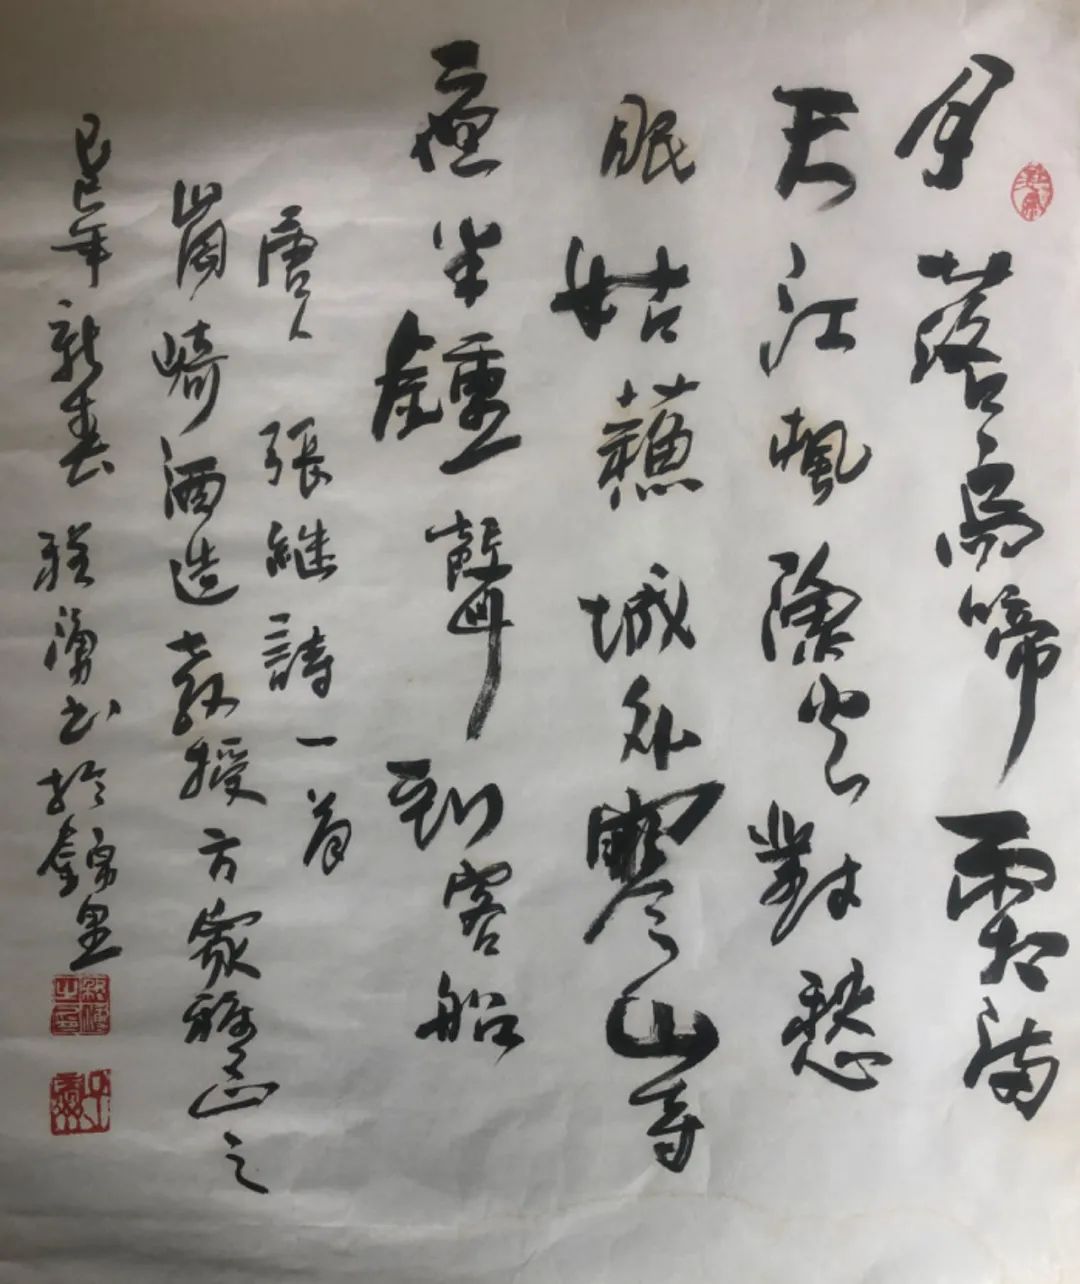 月落烏啼霜滿
天江楓漁火對愁
眠姑蘓城外寒山寺
夜半鍾聲到客船
唐人張継詩一首
崗崎酒造教授方家雅正之
己巳年新春書於錦里